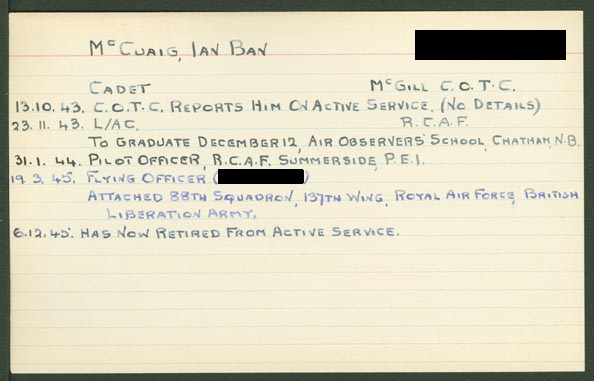 McCuaig, Ian Ban
Cadet McGill C.O.T.C.
13.10.43. C.O.T.C. Reports Him On Active Service. (No Details)
23.11.43. L/AC. R.C.A.F.
To Graduate December 12, Air Observers' School, Chatham, N.B.
31.1.44. Pilot Officer, R.C.A.F. Summerside, P.E.I.
19.3.45. Flying Officer ( )
Attached 88th Squadron, 137th Wing, Royal Air Force, British
Liberation Army.
6.12.45. Has Now Retired From Active Service.